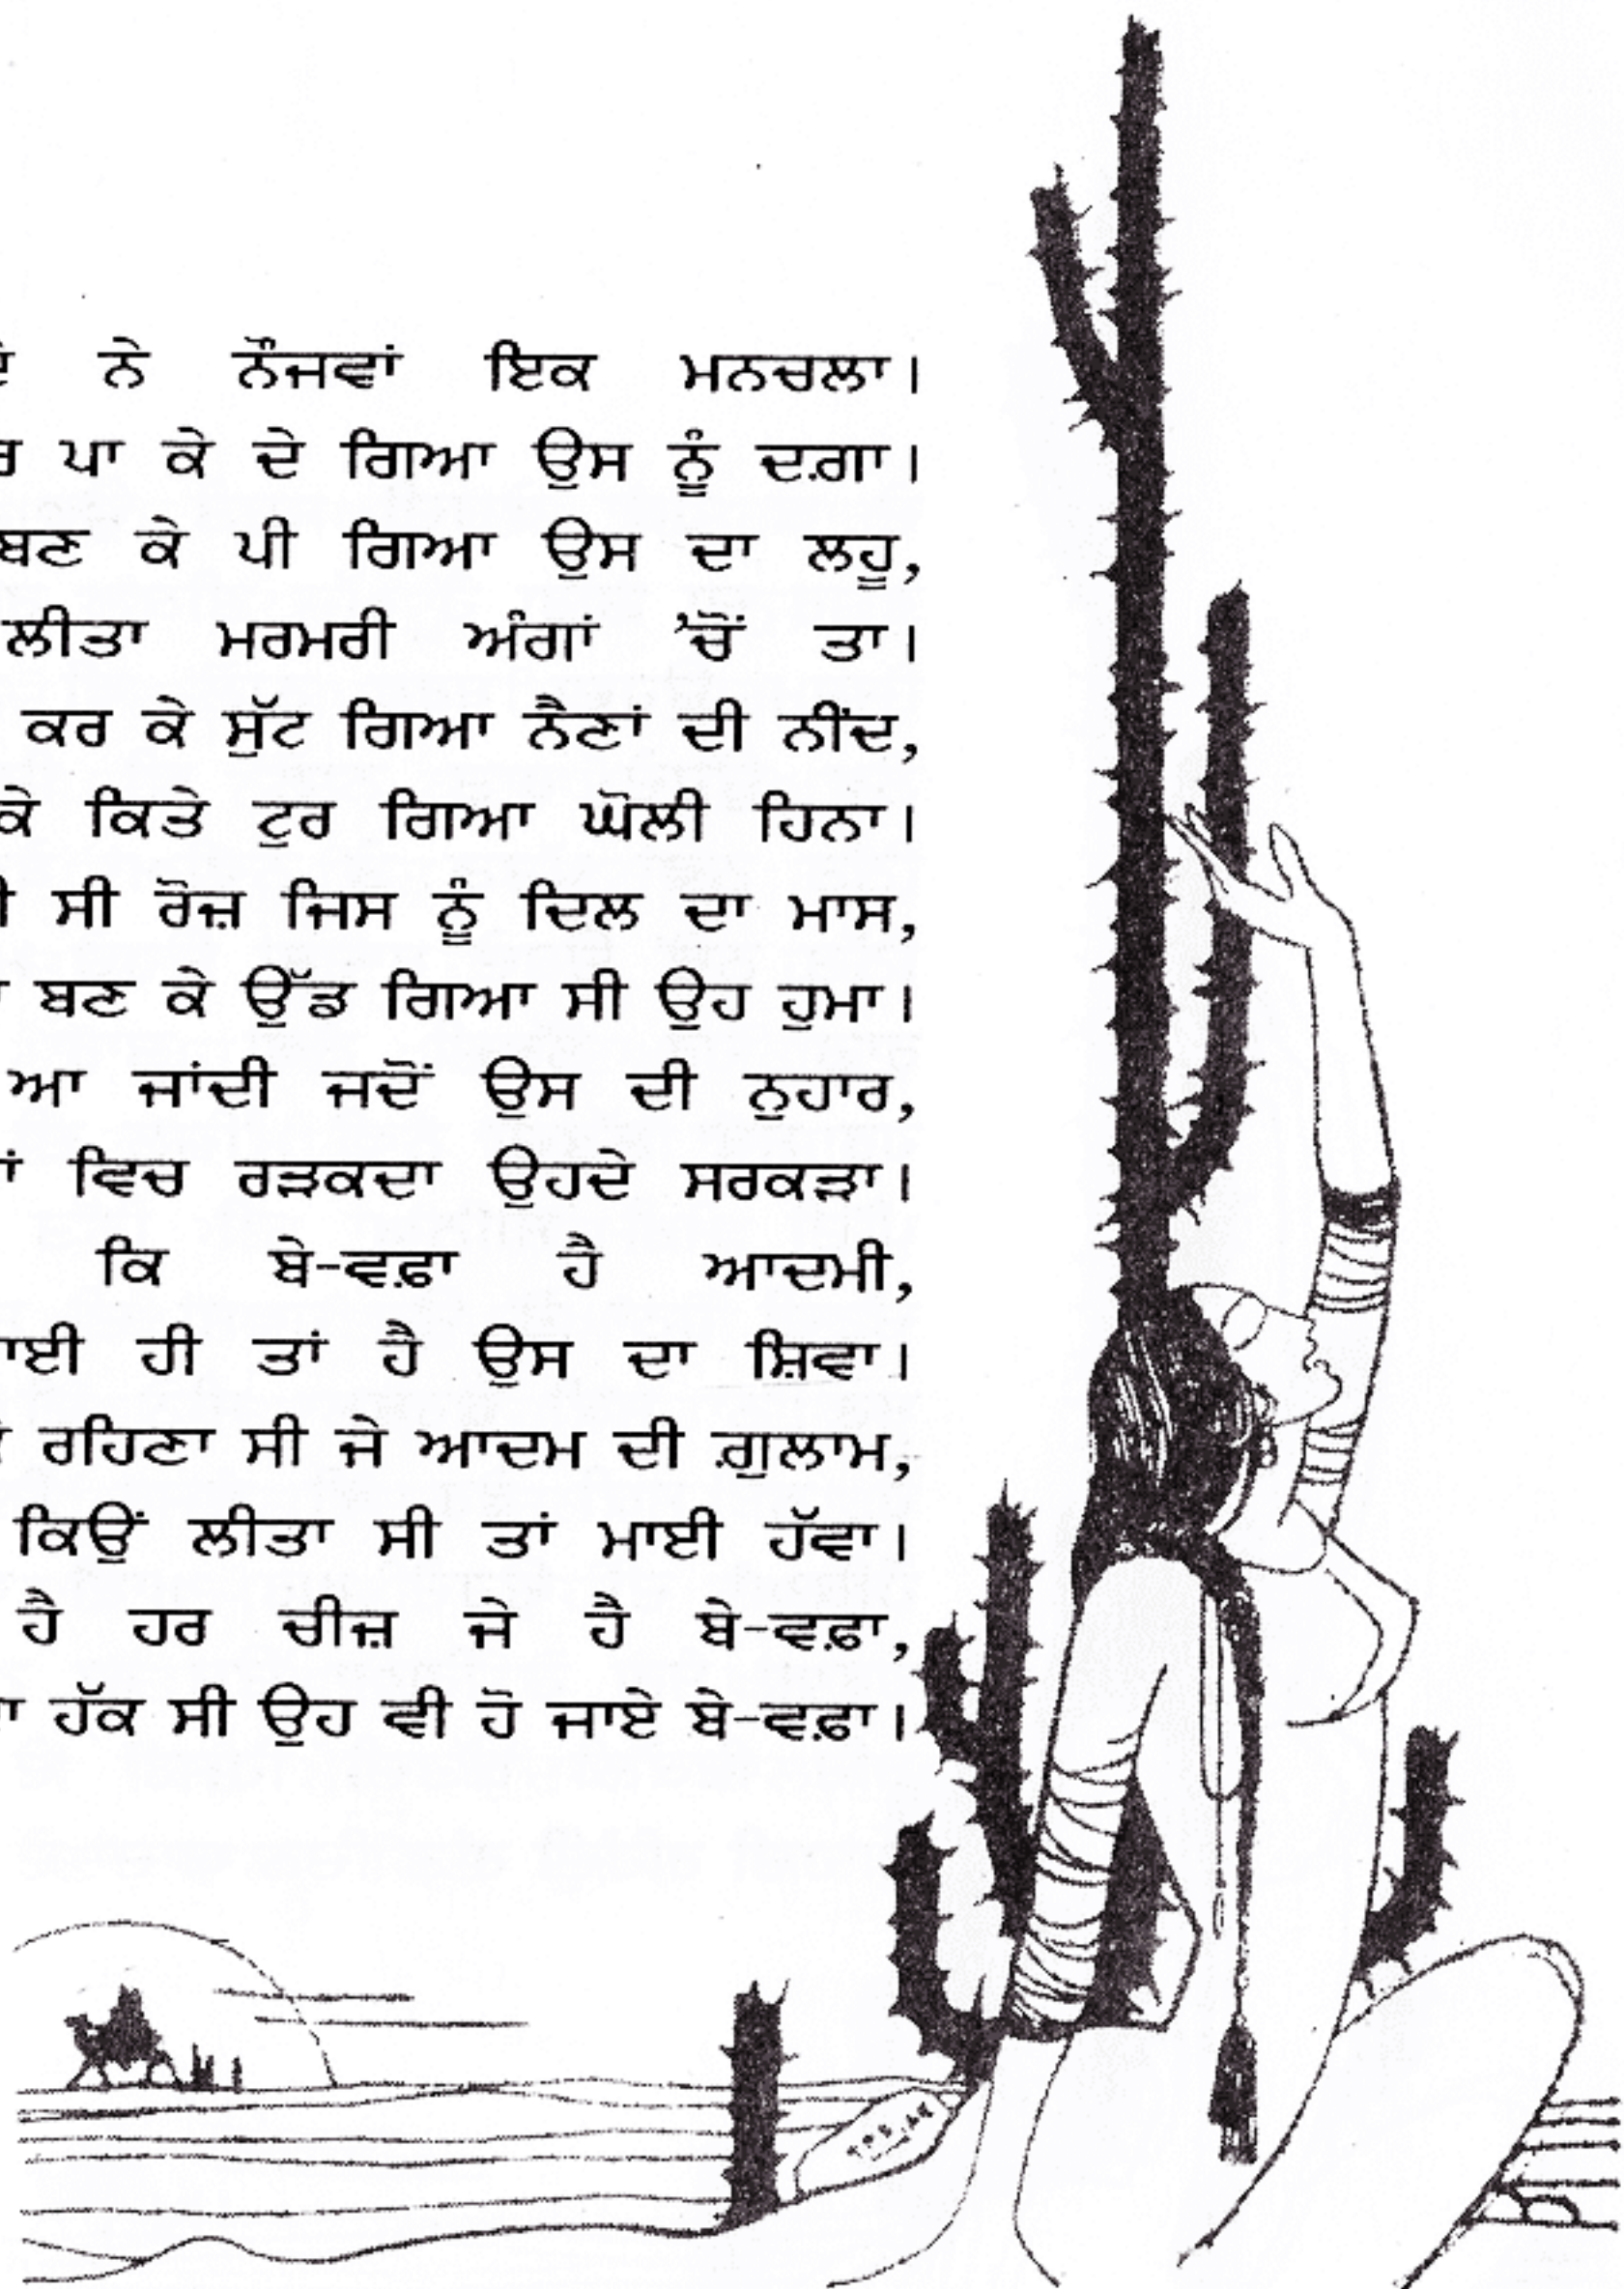 ਨੇ ਨੌਜਵਾਂ ਇਕ ਮਨਚਲਾ।
ਪਾ ਕੇ ਦੇ ਗਿਆ ਉਸ ਨੂੰ ਦਗ਼ਾ।
ਬਣ ਕੇ ਪੀ ਗਿਆ ਉਸ ਦਾ ਲਹੂ,
ਲੀਤਾ ਮਰਮਰੀ ਅੰਗਾਂ ’ਚੋਂ ਤਾ।
ਕਰ ਕੇ ਸੁੱਟ ਗਿਆ ਨੈਣਾਂ ਦੀ ਨੀਂਦ,
ਕੇ ਕਿਤੇ ਟੁਰ ਗਿਆ ਘੋਲੀ ਹਿਨਾ।
ਸੀ ਰੋਜ਼ ਜਿਸ ਨੂੰ ਦਿਲ ਦਾ ਮਾਸ,
ਬਣ ਕੇ ਉੱਡ ਗਿਆ ਸੀ ਉਹ ਹੁਮਾ।
ਆ ਜਾਂਦੀ ਜਦੋਂ ਉਸ ਦੀ ਨੁਹਾਰ,
ਵਿਚ ਰੜਕਦਾ ਉਹਦੇ ਸਰਕੜਾ।
ਕਿ ਬੇ-ਵਫ਼ਾ ਹੈ ਆਦਮੀ,
ਹੀ ਤਾਂ ਹੈ ਉਸ ਦਾ ਸ਼ਿਵਾ।
ਰਹਿਣਾ ਸੀ ਜੇ ਆਦਮ ਦੀ ਗ਼ੁਲਾਮ,
ਕਿਉਂ ਲੀਤਾ ਸੀ ਤਾਂ ਮਾਈ ਹੱਵਾ।
ਹੈ ਹਰ ਚੀਜ਼ ਜੇ ਹੈ ਬੇ-ਵਫ਼ਾ,
ਹੱਕ ਸੀ ਉਹ ਵੀ ਹੋ ਜਾਏ ਬੇ-ਵਫ਼ਾ।